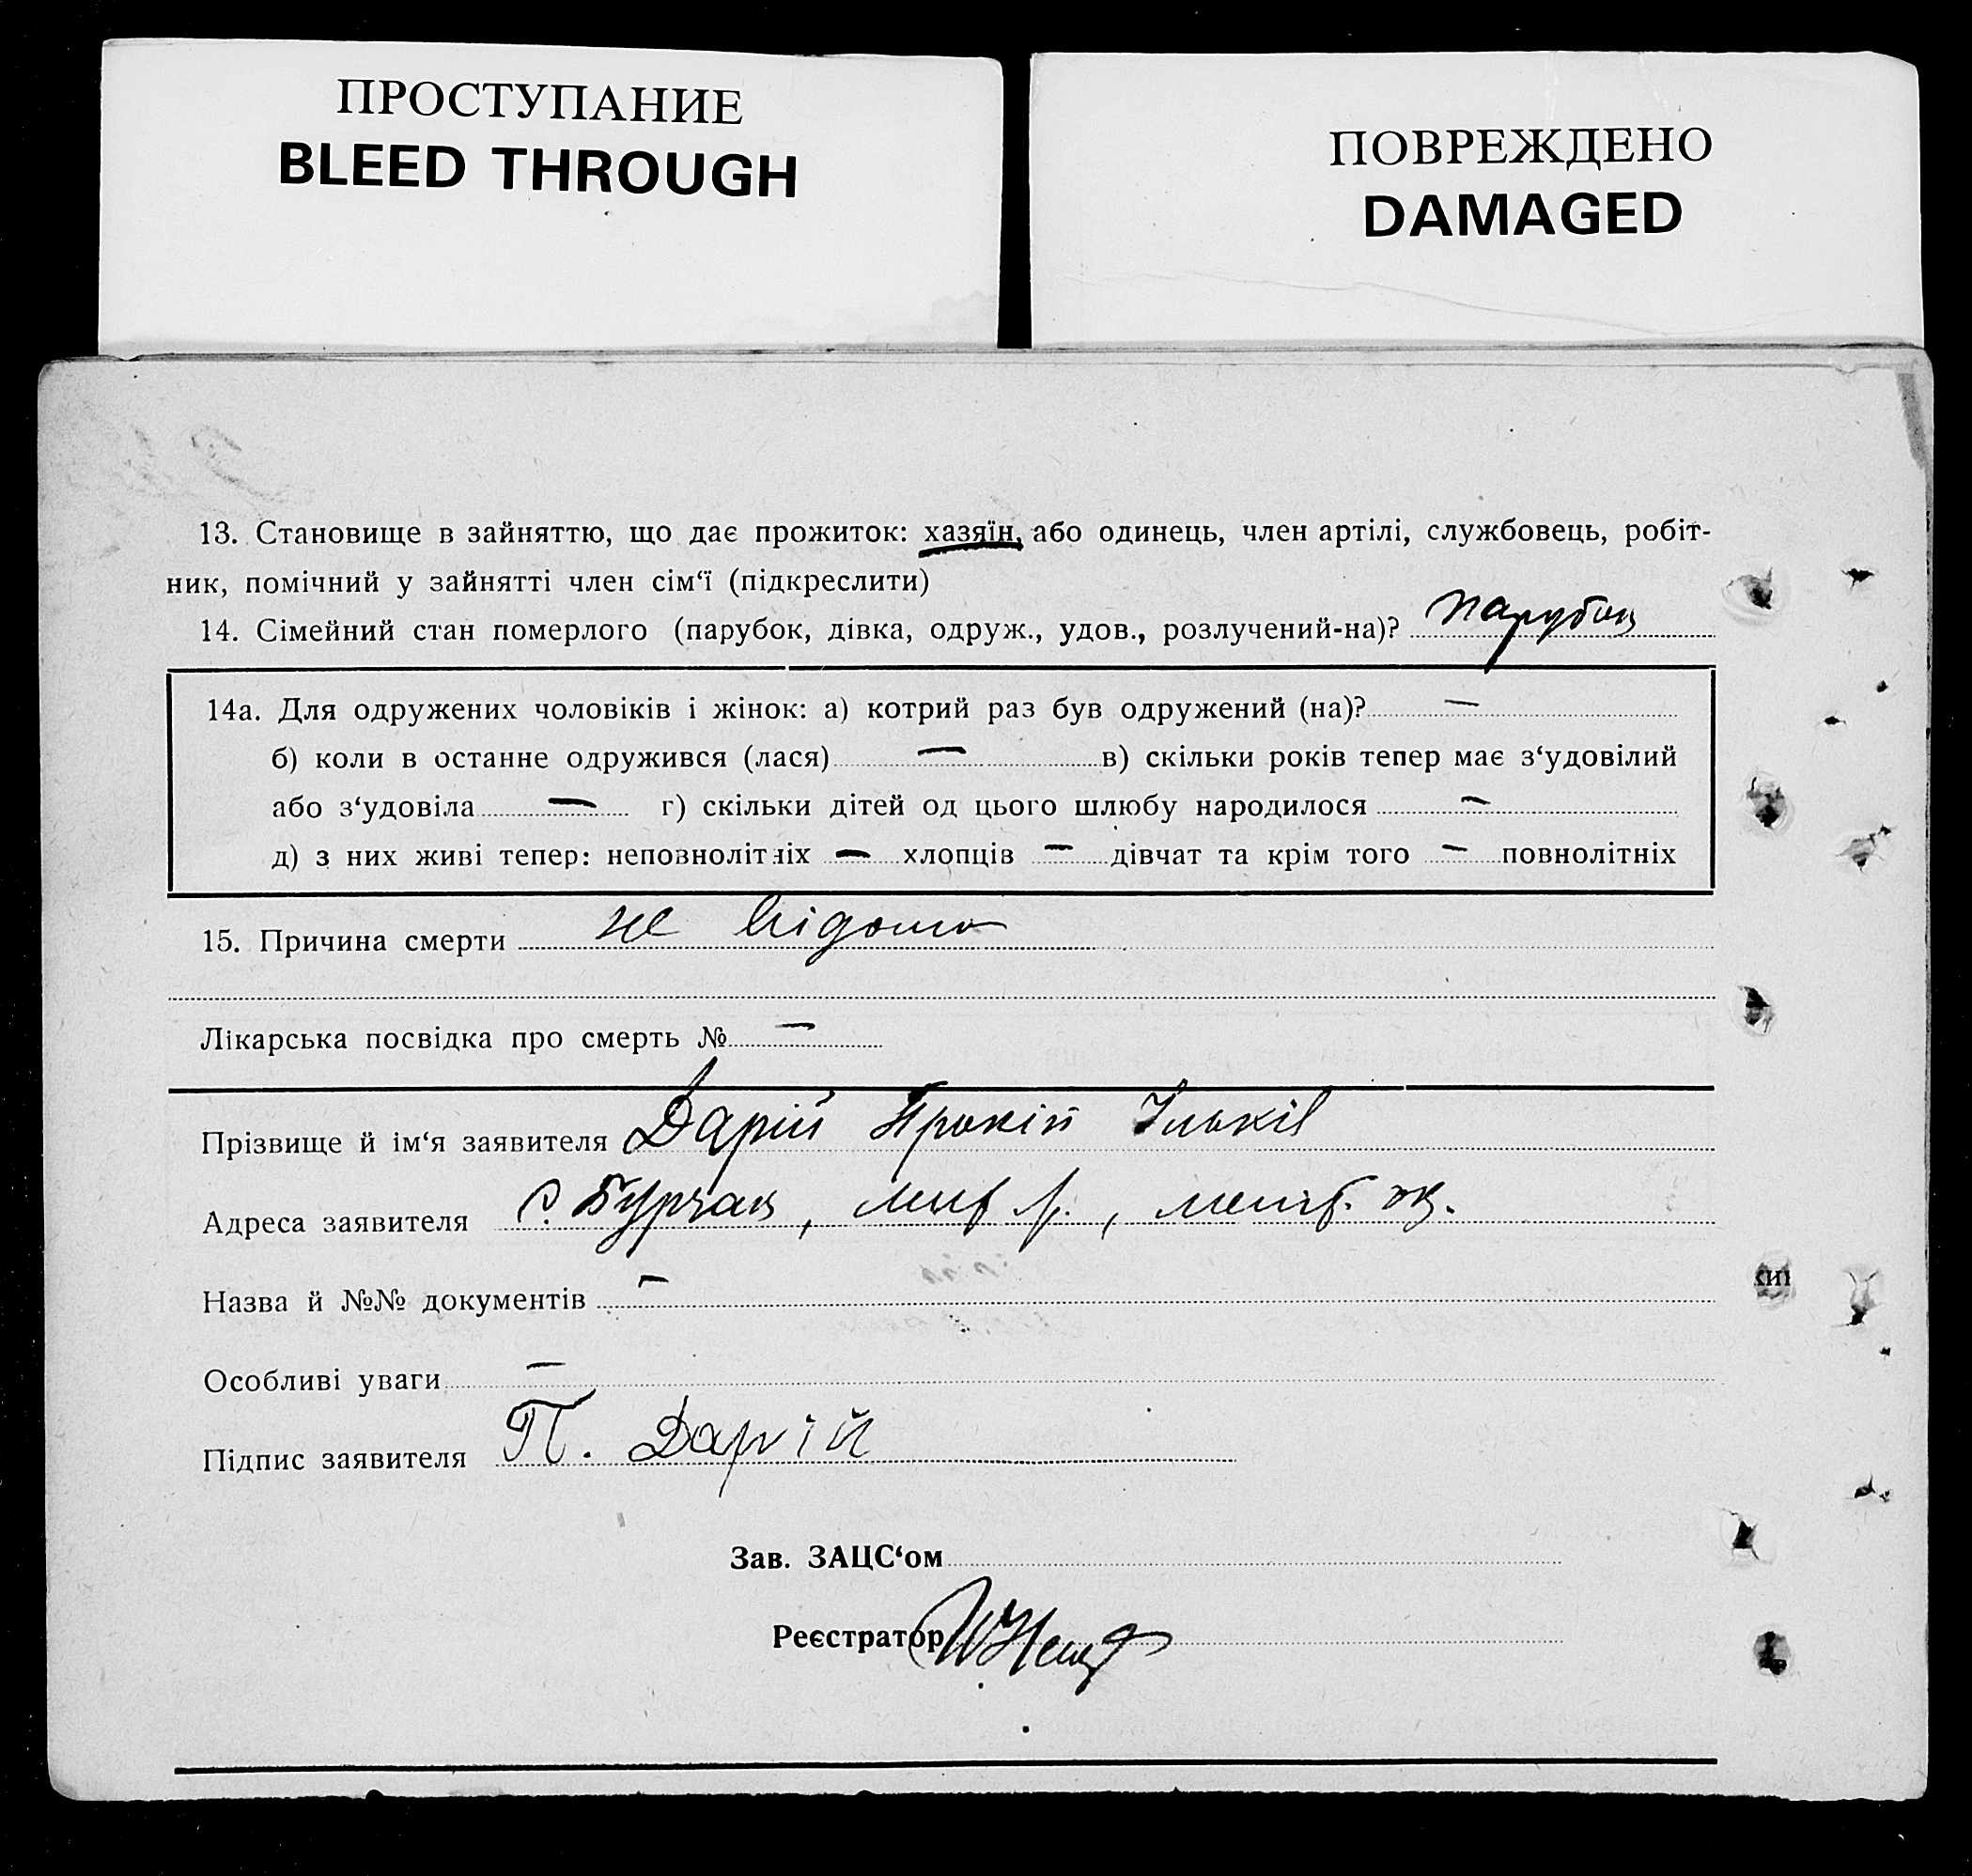 ПРОСТУПАНИЕ
BLEED THROUGH
ПОВРЕЖДЕНО
DAMAGED
13. Становище в зайняттю, що дає прожиток: хазяїн, або одинець, член артілі, службовець, робіт-
ник, помічний у зайнятті член сім‘ї (підкреслити)
14. Сімейний стан померлого (парубок, дівка, одруж., удов., розлучений-на)? парубок
14а. Для одружених чоловіків і жінок: а) котрий раз був одружений (на)? —
б) коли в останне одружився (лася) — в) скільки років тепер має з‘удовілий
або з‘удовіла — г) скільки дітей од цього шлюбу народилося —
д) з них живі тепер: неповнолітніх — хлопців — дівчат та крім того — повнолітніх
15. Причина смерти не відомо
Лікарська посвідка про смерть № —
Прізвище й ім‘я заявителя Дарій Прокіп Ільків
Адреса заявителя с. Бурчак, мих р., меліт. ок.
Назва й №№ документів —
Особливі уваги —
Підпис заявителя П. Дарій
Зав. ЗАЦС‘ом
Реєстратор